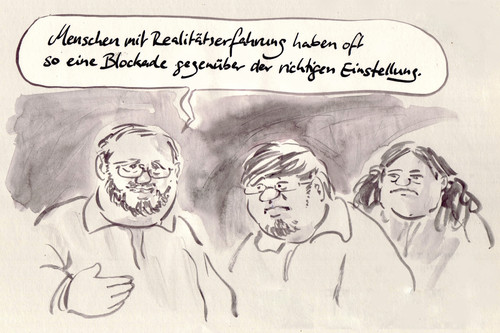 Menschen mit Realitätserfahrung haben oft
so eine Blockade gegenüber der richtigen Einstellung.